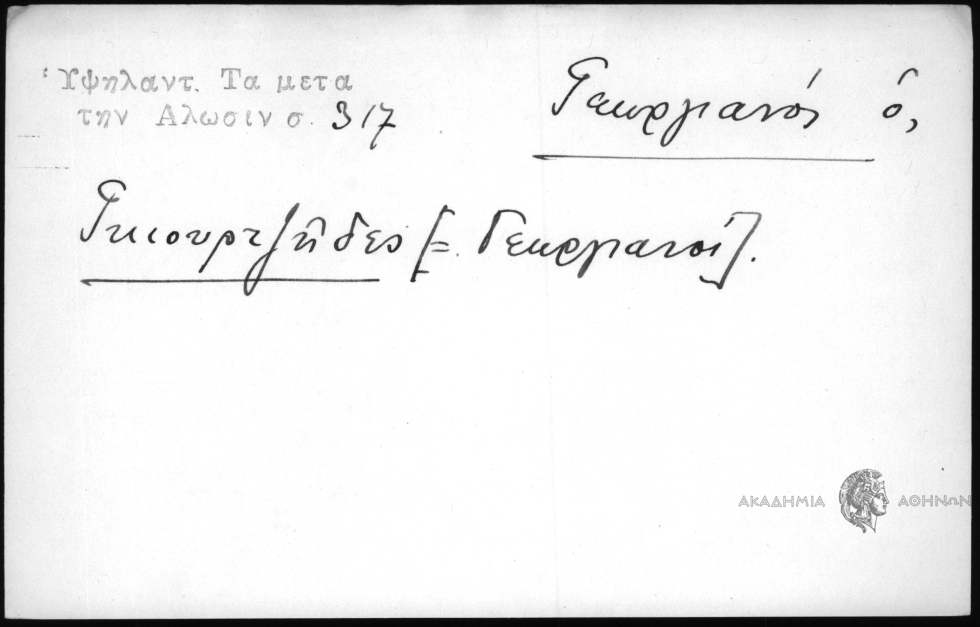 Ὑψηλαντ. Τα μετα
την Αλωσιν σ. 317
Γεωργιανός ὁ,
Γκιουρτζῆδες [=. Γεωργιανοί].
ΑΚΑΔΗΜΙΑ ΑΘΗΝΩΝ